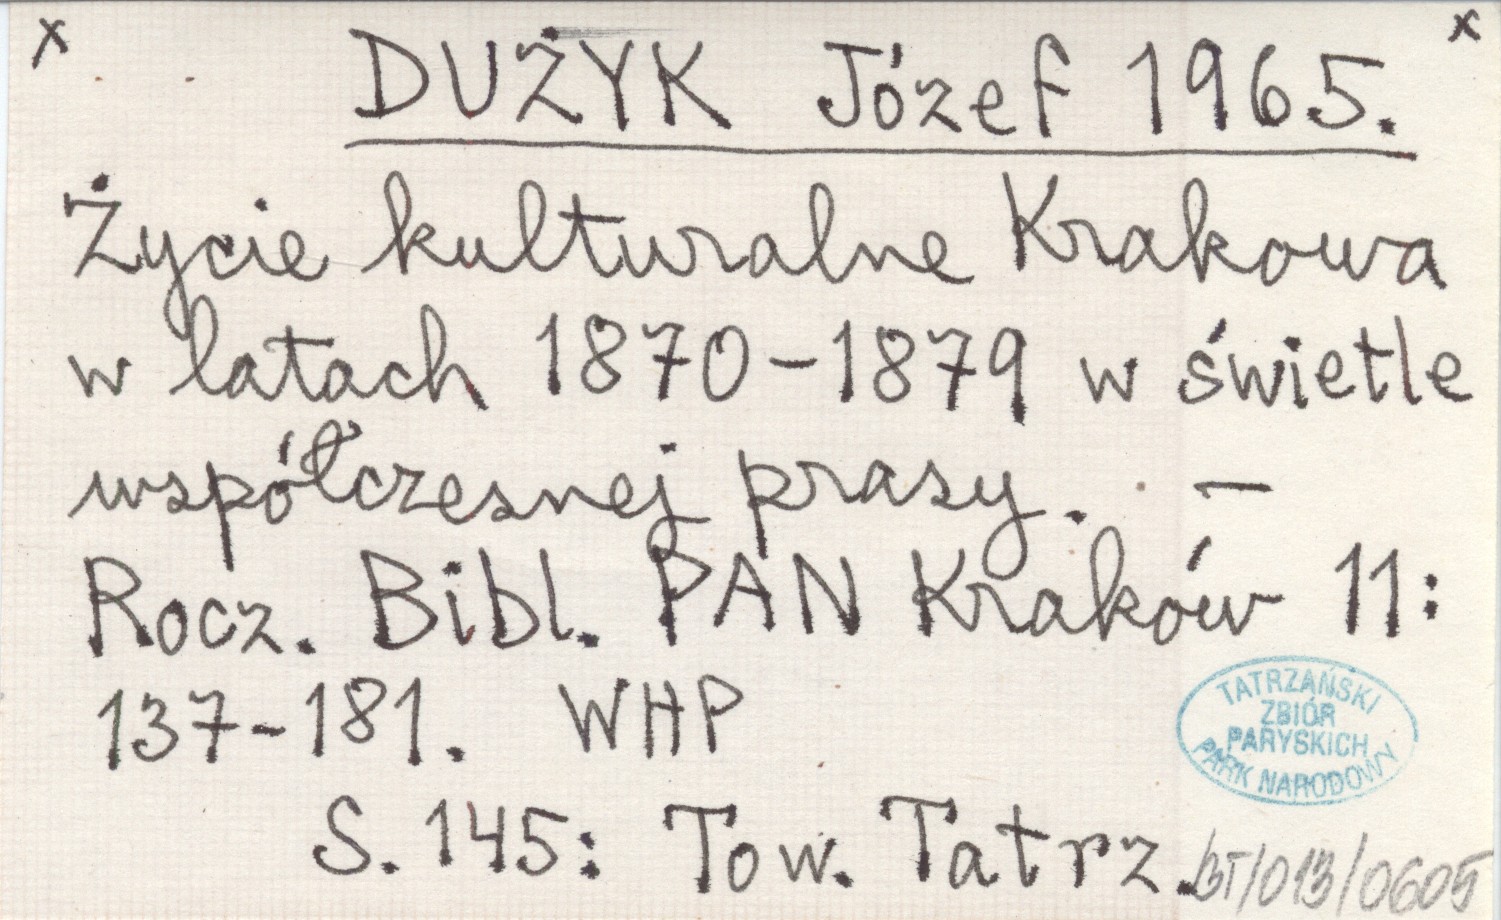 x x
DUŻYK Józef 1965.
Życie kulturalne Krakowa
w latach 1870-1879 w świetle
współczesnej prasy. —
Rocz. Bibl. PAN Kraków 11:
137-181. WHP
TATRZAŃSKI
ZBIÓR
PARYSKICH
PARK NARODOWY
S. 145: Tow. Tatrz.
BT/013/0605